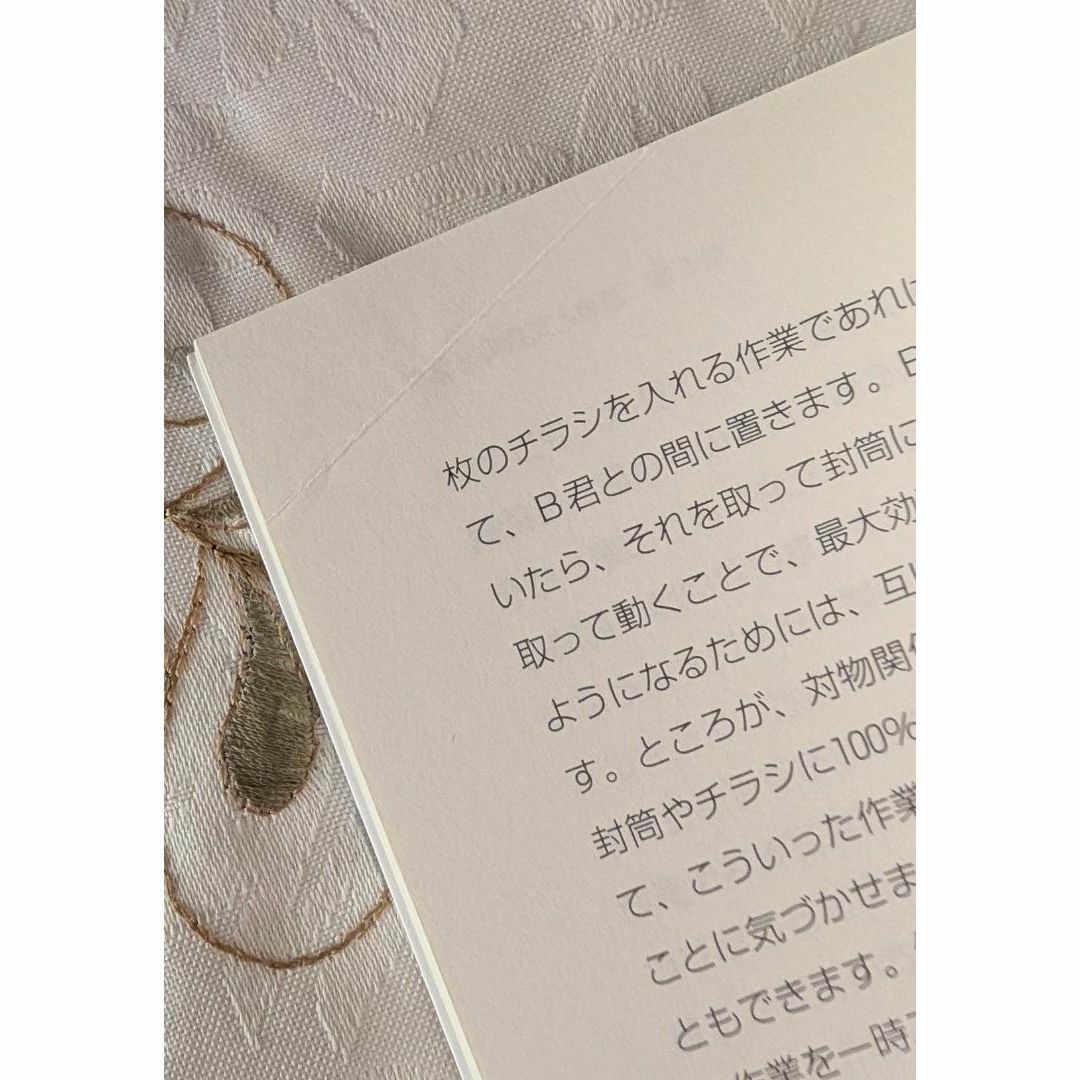 枚のチラシを入れる作業であれば
て、B君との間に置きます。B
いたら、それを取って封筒に
取って動くことで、最大効
ようになるためには、互い
す。ところが、対物関係
封筒やチラシに100%
て、こういった作業
ことに気づかせま
ともできます。
作業を一時